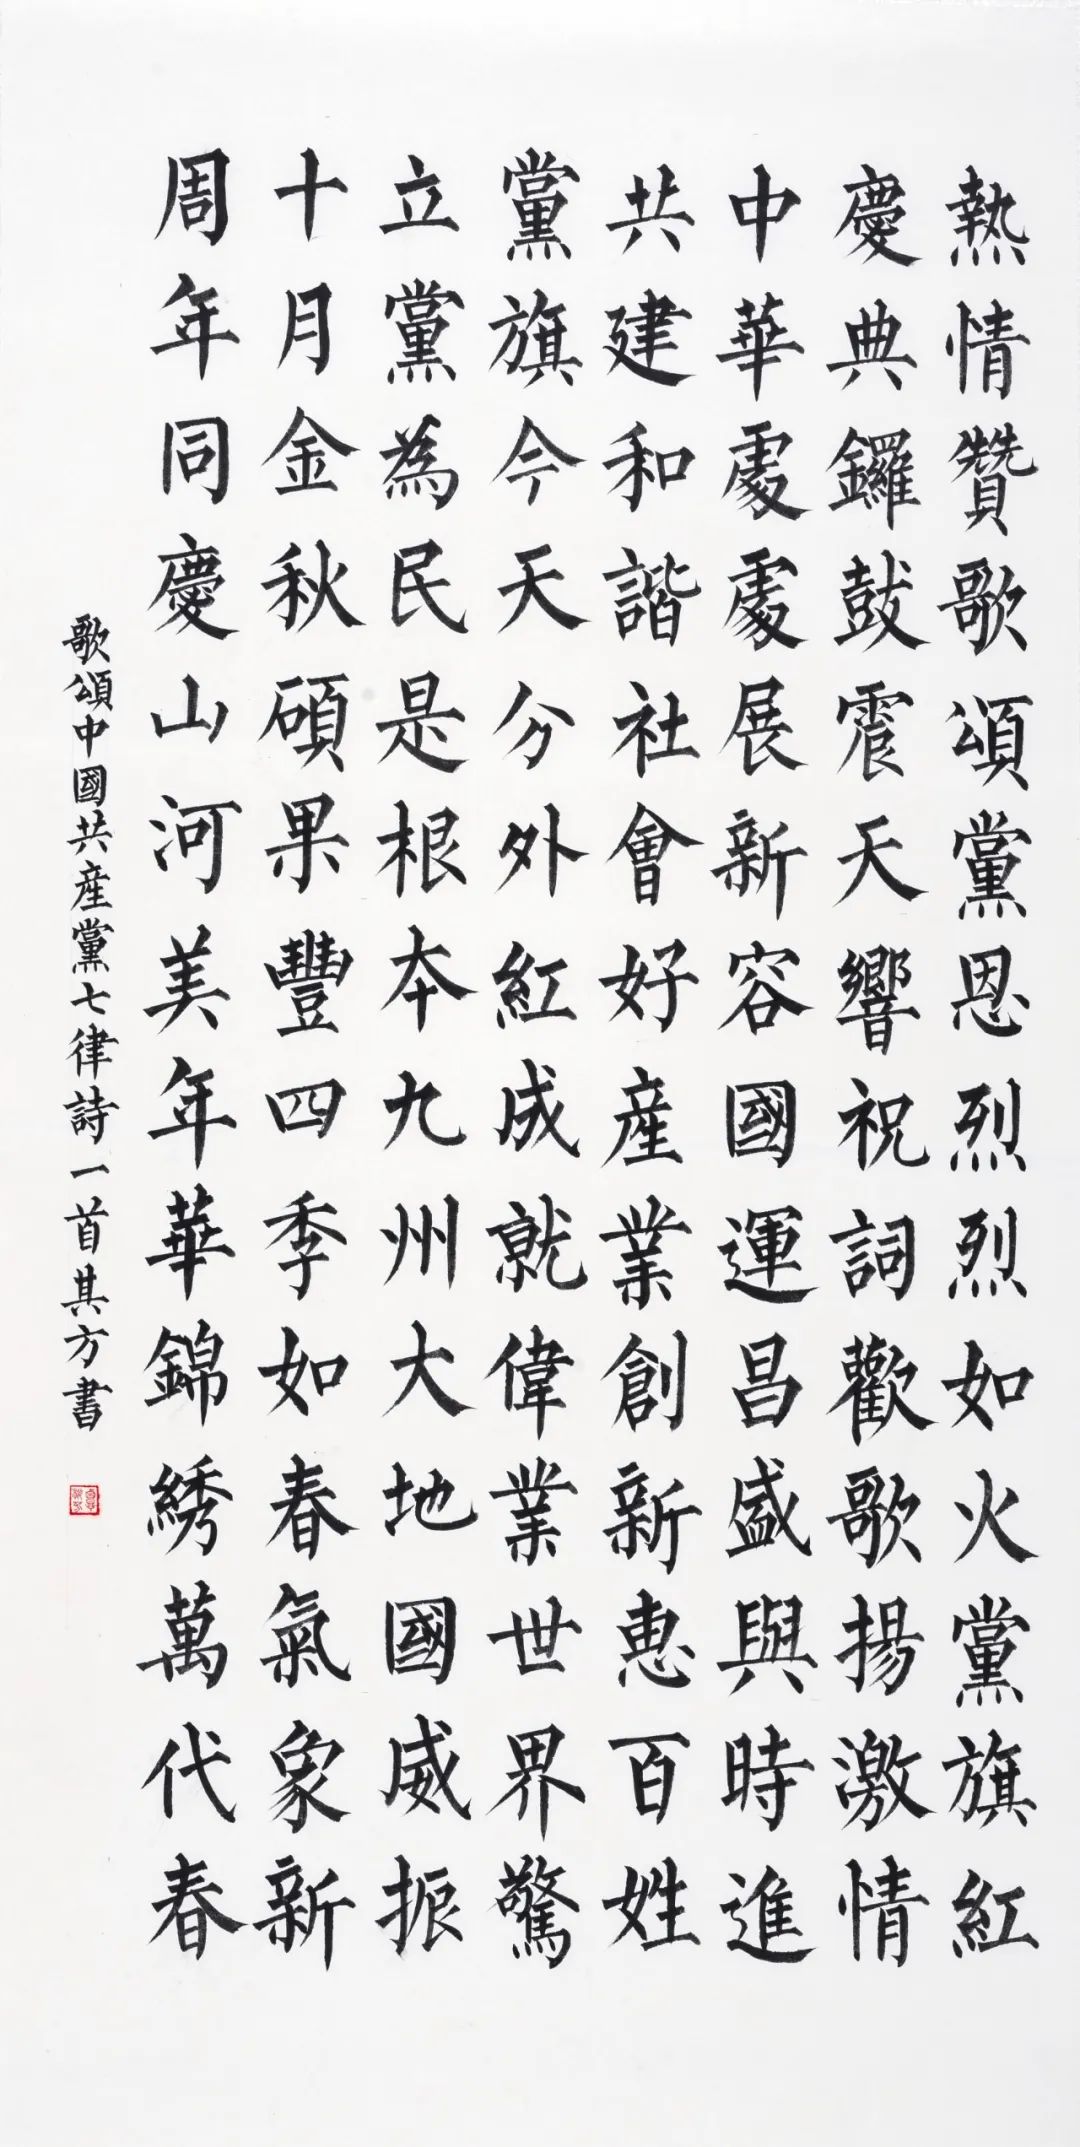 熱情贊歌頌黨恩烈烈如火黨旗紅
慶典鑼鼓震天響祝詞歡歌揚激情
中華處處展新容國運昌盛與時進
共建和諧社會好産業創新惠百姓
黨旗今天分外紅成就偉業世界驚
立黨為民是根本九州大地國威振
十月金秋碩果豐四季如春氣象新
周年同慶山河美年華錦綉萬代春
歌頌中國共産黨七律詩一首其方書